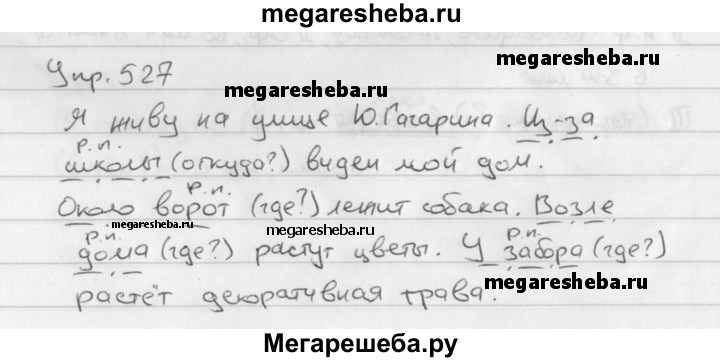 megaresheba.ru
Упр. 527
megaresheba.ru
Я живу на улице Ю.Гагарина. Из-за
megaresheba.ru
р.п.
школы (откуда?) виден мой дом.
р.п.
Около ворот (где?) лежит собака. Возле
megaresheba.ru
р.п.
р.п.
дома (где?) растут цветы. У забора (где?)
megaresheba.ru
megaresheba.ru
растёт декоративная трава.
Мегарешеба.ру